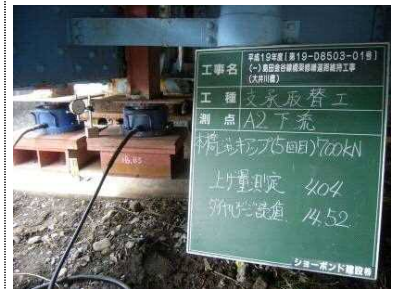 工事名
平成19年度[第19-D8503-01号]
(一)島田金谷線橋梁修繕道路維持工事
(大井川橋)
工種 支承取替工
測点 A2下流
本橋ジャッキアップ(5回目)700kN
上げ量測定 4.04
ダイヤルゲージ読値 14.52
ショーボンド建設㈱